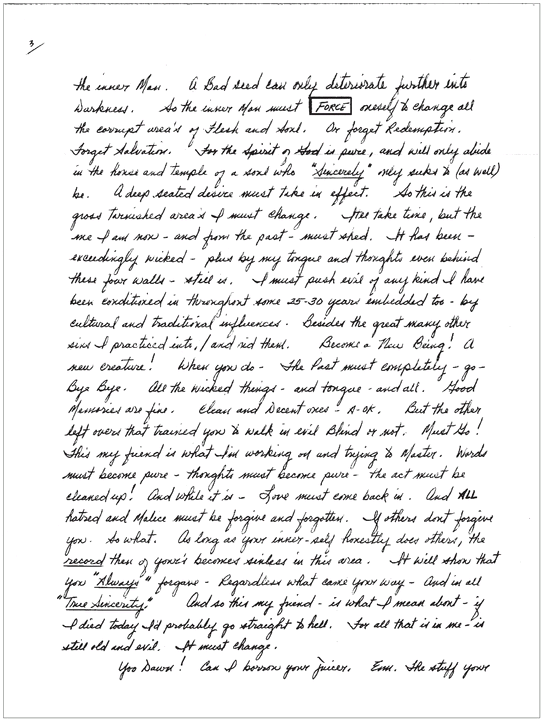 3/
the inner Man. A Bad seed can only deteriorate further into
Darkness. So the inner Man must FORCE oneself to change all
the corrupt area's of Flesh and Soul. Or forget Redemption.
Forget Salvation. For the Spirit of God is pure, and will only abide
in the house and temple of a soul who "Sincerely" only seeks to (as well)
be. A deep seated desire must take in effect. So this is the
gross tarnished area's I must change. It'll take time, but the
me I am now - and from the past - must shed. It has been -
exceedingly wicked - plus by my tongue and thoughts even behind
these four walls - still is. I must push evil of any kind I have
been conditioned in throughout some 25-30 years imbedded too - by
cultural and traditional influences. Besides the great many other
sins I practiced into, / and rid them. Become a New Being! A
new creature! When you do - The Past must completely - go -
Bye Bye. All the wicked things - and tongue - and all. Good
Memories are fine. Clean and Decent ones - A-OK. But the other
left overs that trained you to walk in evil Blind or not. Must Go!
This my friend is what I'm working on and trying to Master. Words
must become pure - thoughts must become pure - the act must be
cleaned up! And while it is - Love must come back in. And ALL
hatred and Malice must be forgive and forgotten. If others dont forgive
you. So what. As long as your inner-self honestly does others, the
record then of your's becomes sinless in this area. It will show that
you "Always" forgave - Regardless what came your way - And in all
"True Sincerity." And so this my friend - is what I mean about - if
I died today I'd probably go straight to hell. For all that is in me - is
still old and evil. It must change.
Yoo Dawn! Can I borrow your juicer. The stuff your